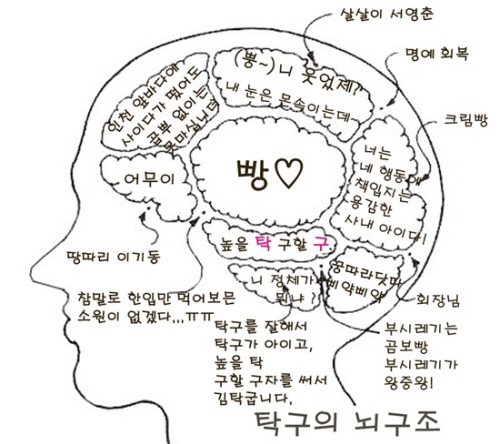 살살이 서영춘
명예 회복
(뿅~)니 웃었제?
내 눈은 못속이는데~
인천 앞바다에
사이다가 떴어도
곱뿌 없이는
못마십니다
크림빵
너는
네 행동에
책임지는
용감한
사내 아이다!
빵♡
어무이
높을 탁 구할 구.
땅따리 이기동
니 정체가
뭐냐?!
쿵따라닷따
삐약삐약
회장님
참말로 한입만 먹어보믄
소원이 없겠다...ㅠㅠ
탁구를 잘해서
탁구가 아이고,
높을 탁
구할 구자를 써서
김탁굽니다.
부시레기는
곰보빵
부시레기가
왕중왕!
탁구의 뇌구조